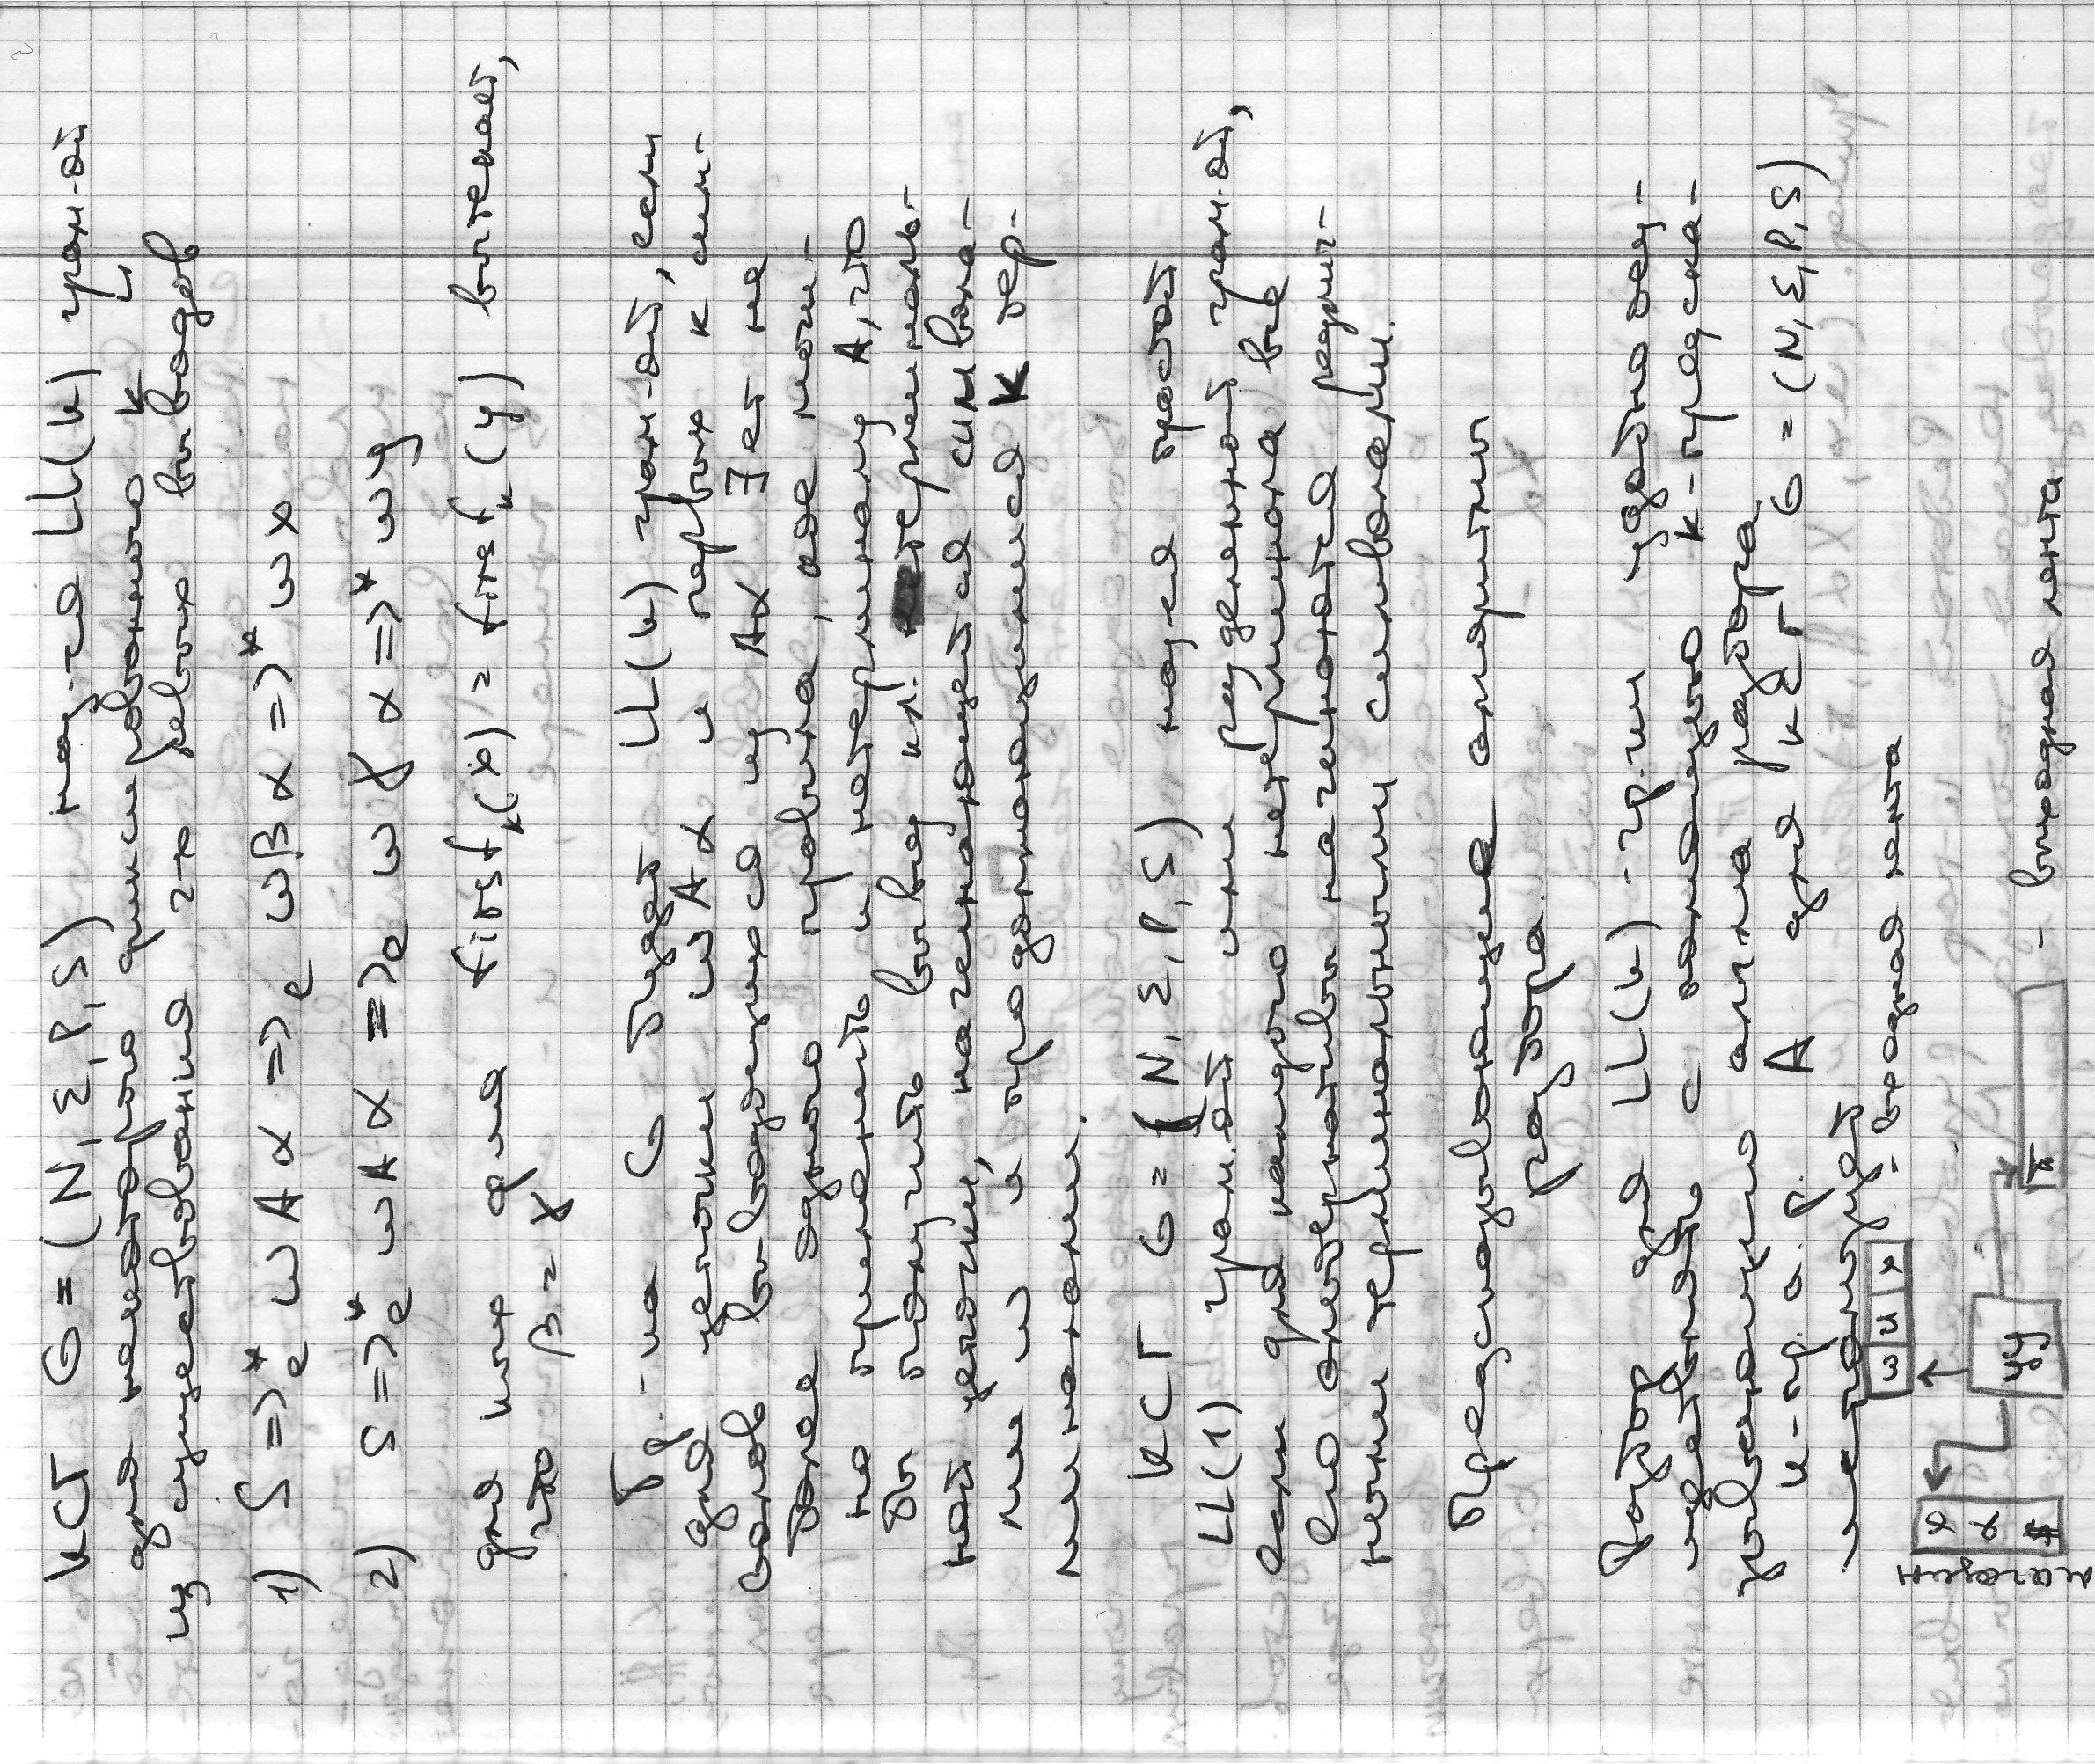 КСГ G = (N, Σ, P, S) наз-ся LL(k) грам-ой
для некоторого фиксированного k
из существования 2-х левых выводов
1) S =>*ₑ wAα =>ₑ wβα =>* wx
2) S =>*ₑ wAα =>ₑ wγα =>* wy
для ких для first_k(x) = first_k(y) вытекает,
что β = γ
Гр.-ка G будет LL(k) грам-ой, если
для цепочки wAα и первых k сим-
волов выводящихся из Aα ∃ет не
более одного правила, кое мож-
но применить к нетерминалу A, что
бы получить вывод к.л. терминаль-
ной цепочки, начинающейся символа-
ми w и продолжающейся k тер-
миналами.
КСГ G = (N, Σ, P, S) наз-ся простой
LL(1) грам.ой или разделенной грам-ой,
если для каждого нетерминала все
его альтернативы начинаются различ-
ными терминальными символами.
Предсказывающие алгоритмы
разбора.
Разбор для LL(k) - гр.ки удобно осу-
ществлять с помощью k-предска-
зывающего алг-ма разбора.
k-пр. а. р. A для КСГ G = (N, Σ, P, S)
использует
w u x - входная лента
магазин X α $
УУ
π - выходная лента